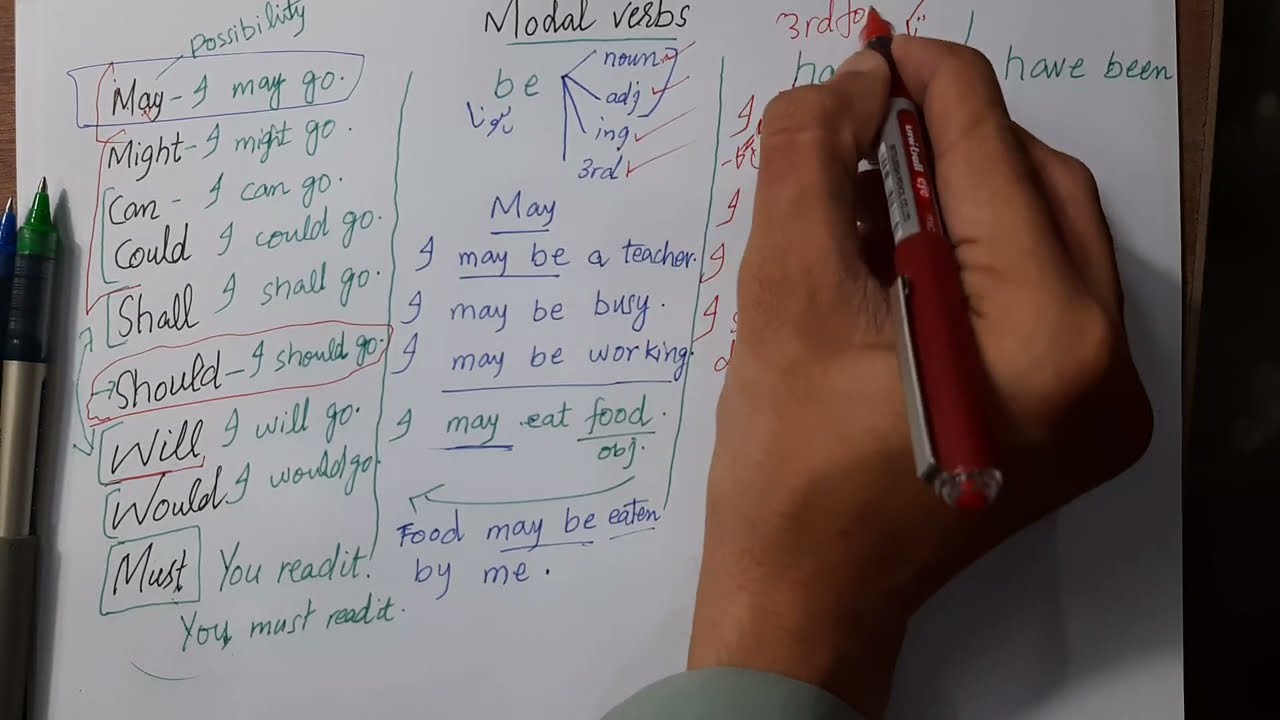 Modal verbs
Possibility
May - I may go.
Might - I might go.
Can - I can go.
Could I could go.
Shall I shall go.
Should - I should go.
Will I will go.
Would I would go.
Must You readit.
You must readit.
be
noun
adj
ing
3rd
May
I may be a teacher.
I may be busy.
I may be working.
I may eat food.
obj.
Food may be eaten
by me.
3rd fo
ha
I
I
I
I s
have been
uniball eye